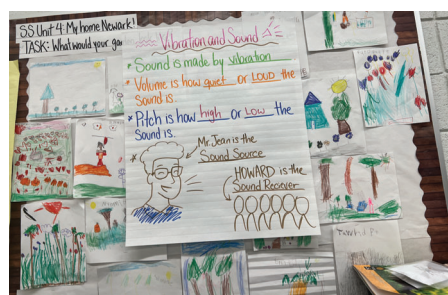 SS Unit 4: My home Newark!
TASK: What would your gar
Vibration and Sound
• Sound is made by vibration
• Volume is how quiet or LOUD the
Sound is.
* Pitch is how high or Low the
Sound is.
Mr. Jean is the
Sound Source
HOWARD is the
Sound Reciever